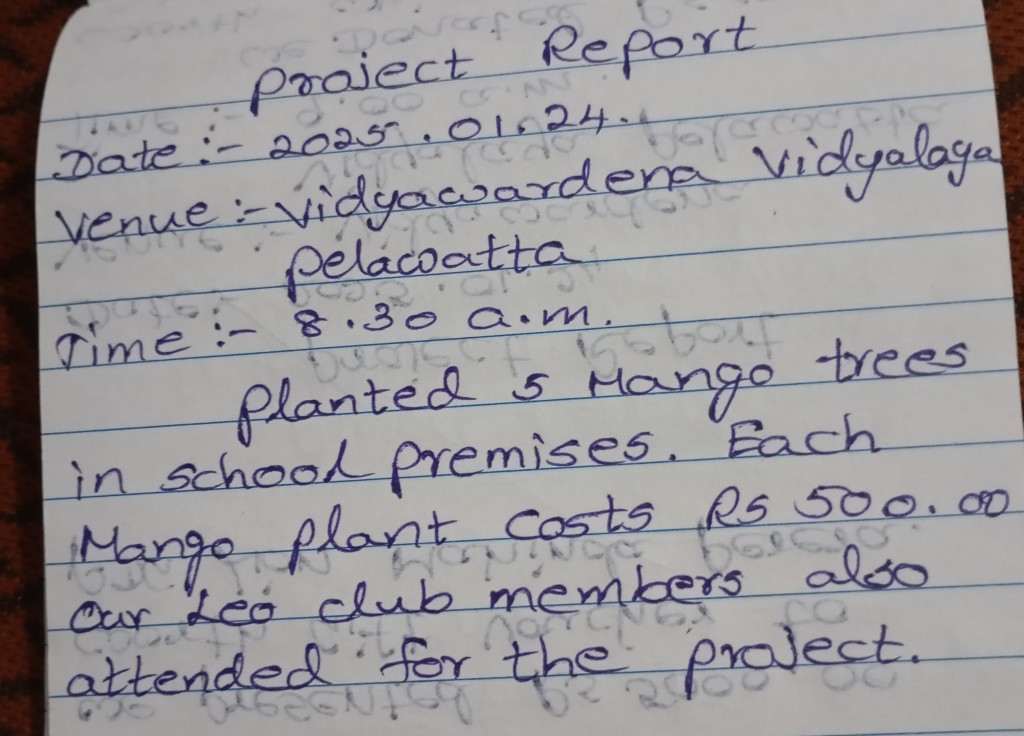 Project Report
Date :- 2025.01.24.
Venue :- Vidyawardena Vidyalaya
Pelawatta
Time :- 8.30 a.m.
Planted 5 Mango trees
in school premises. Each
Mango plant costs Rs 500.00
Our Leo club members also
attended for the project.